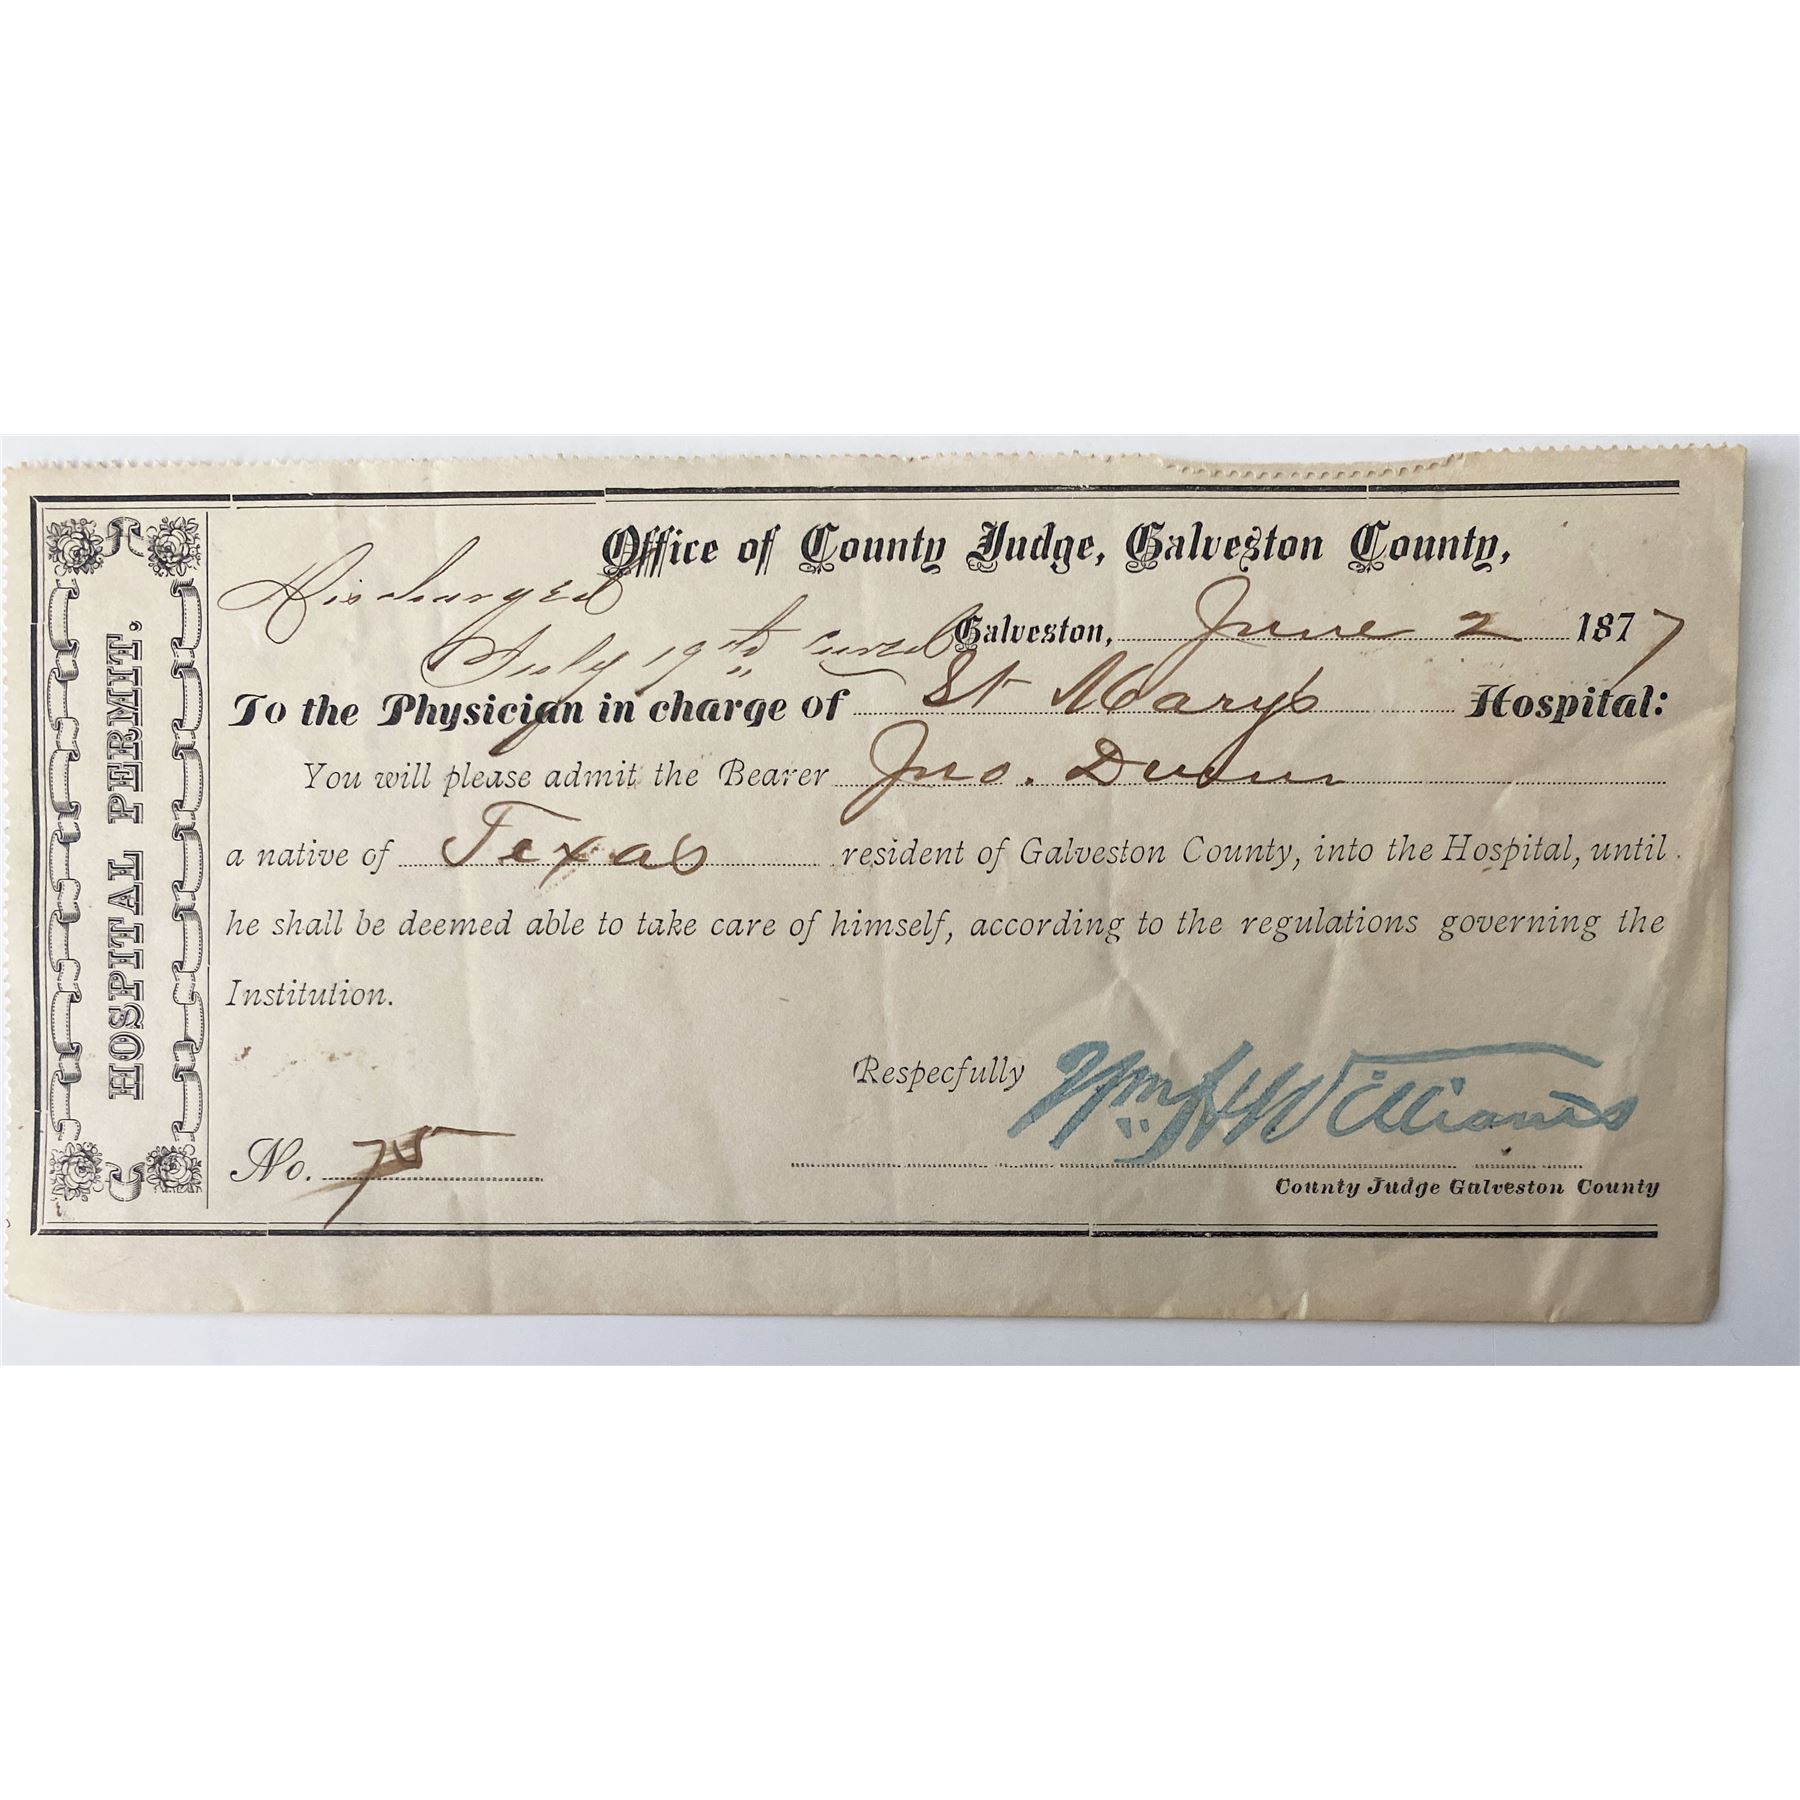 HOSPITAL PERMIT.
Office of County Judge, Galveston County,
Discharged
July 19th cured
Galveston, June 2 1877
To the Physician in charge of St Mary's Hospital:
You will please admit the Bearer Jno.
a native of Texas resident of Galveston County, into the Hospital, until
he shall be deemed able to take care of himself, according to the regulations governing the
Institution.
Respecfully Wm H Williams
No. 75
County Judge Galveston County